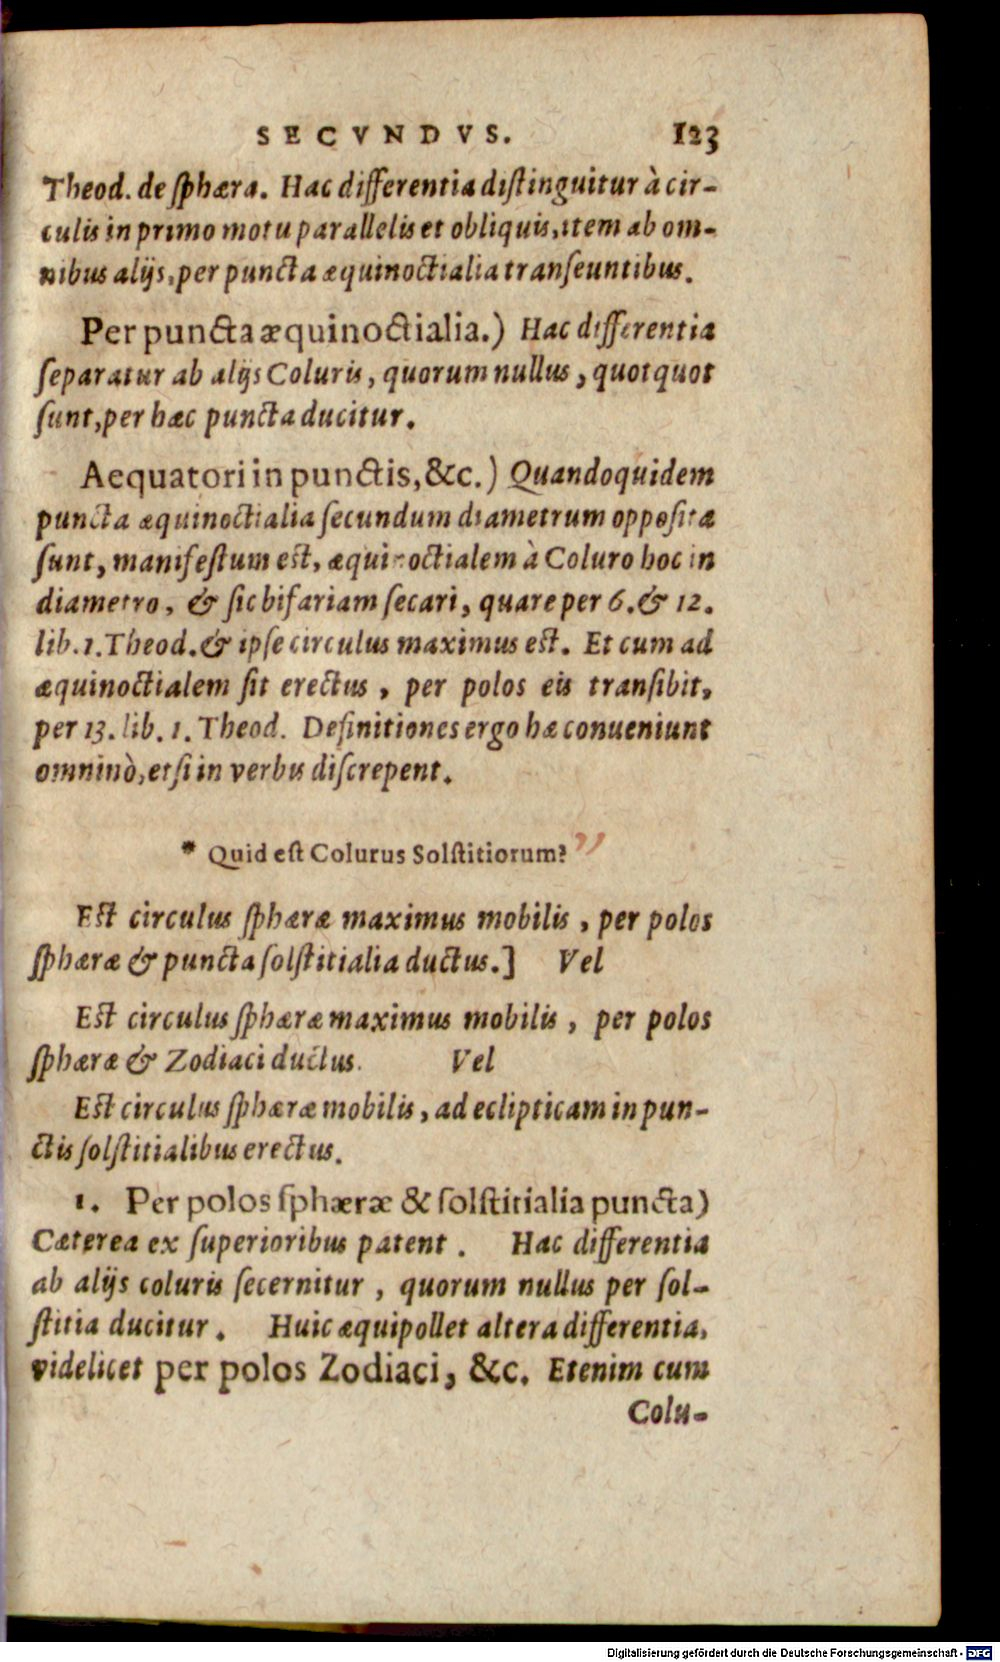 SECVNDVS. 123
Theod. de ſphæra. Hac differentia diſtinguitur à cir-
culis in primo motu parallelis et obliquis, item ab om-
nibus alijs, per puncta æquinoctialia tranſeuntibus.
Per puncta æquinoctialia.) Hac differentia
ſeparatur ab alijs Coluris, quorum nullus, quotquot
ſunt, per hæc puncta ducitur.
Aequatori in punctis, &c.) Quandoquidem
puncta æquinoctialia ſecundum diametrum oppoſita
ſunt, manifeſtum est, æquinoctialem à Coluro hoc in
diametro, & ſic bifariam ſecari, quare per 6. & 12.
lib. 1. Theod. & ipſe circulus maximus est. Et cum ad
æquinoctialem ſit erectus, per polos eis tranſibit,
per 13. lib. 1. Theod. Definitiones ergo hæ conueniunt
omninò, etſi in verbis diſcrepent.
* Quid eſt Colurus Solſtitiorum?
Est circulus ſphæræ maximus mobilis, per polos
ſphæræ & puncta ſolſtitialia ductus.] Vel
Est circulus ſphæræ maximus mobilis, per polos
ſphæræ & Zodiaci ductus. Vel
Est circulus ſphæræ mobilis, ad eclipticam in pun-
ctis ſolſtitialibus erectus.
1. Per polos ſphæræ & ſolſtitialia puncta)
Cæterea ex ſuperioribus patent. Hac differentia
ab alijs coluris ſecernitur, quorum nullus per ſol-
ſtitia ducitur. Huic æquipollet altera differentia,
videlicet per polos Zodiaci, &c. Etenim cum
Colu-
Digitalisierung gefördert durch die Deutsche Forschungsgemeinschaft - DFG